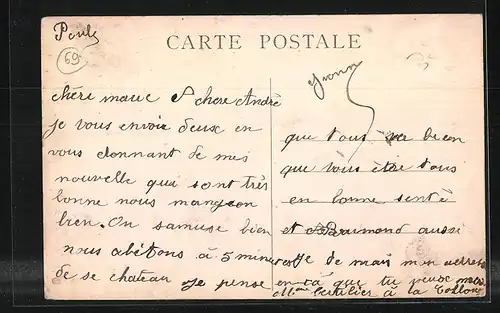 Poule
69
CARTE POSTALE
Yvonne
chère marie & chere Andrè
je vous envoie deux en
vous donnant de mes
nouvelle qui sont très
bonne nous mangeon
bien. On samuse bien
nous abitons à 5 minutes
de se chateau je pense
que tous va bien
que vous ête tous
en bonne sentè
et aussi
Je de mais mon adresse
en cà que tu peux
à la